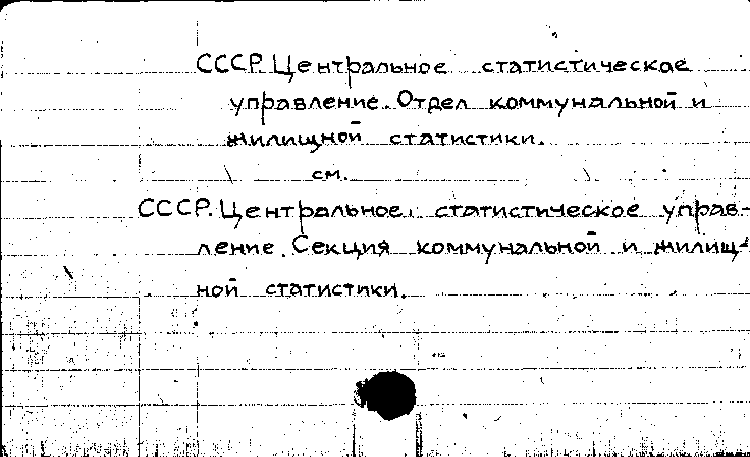 СССР. Центральное статистическое
управление. Отдел коммунальной и
жилищной статистики.
см.
СССР. Центральное статистическое управ-
ление. Секция коммунальной и жилищ-
ной статистики.